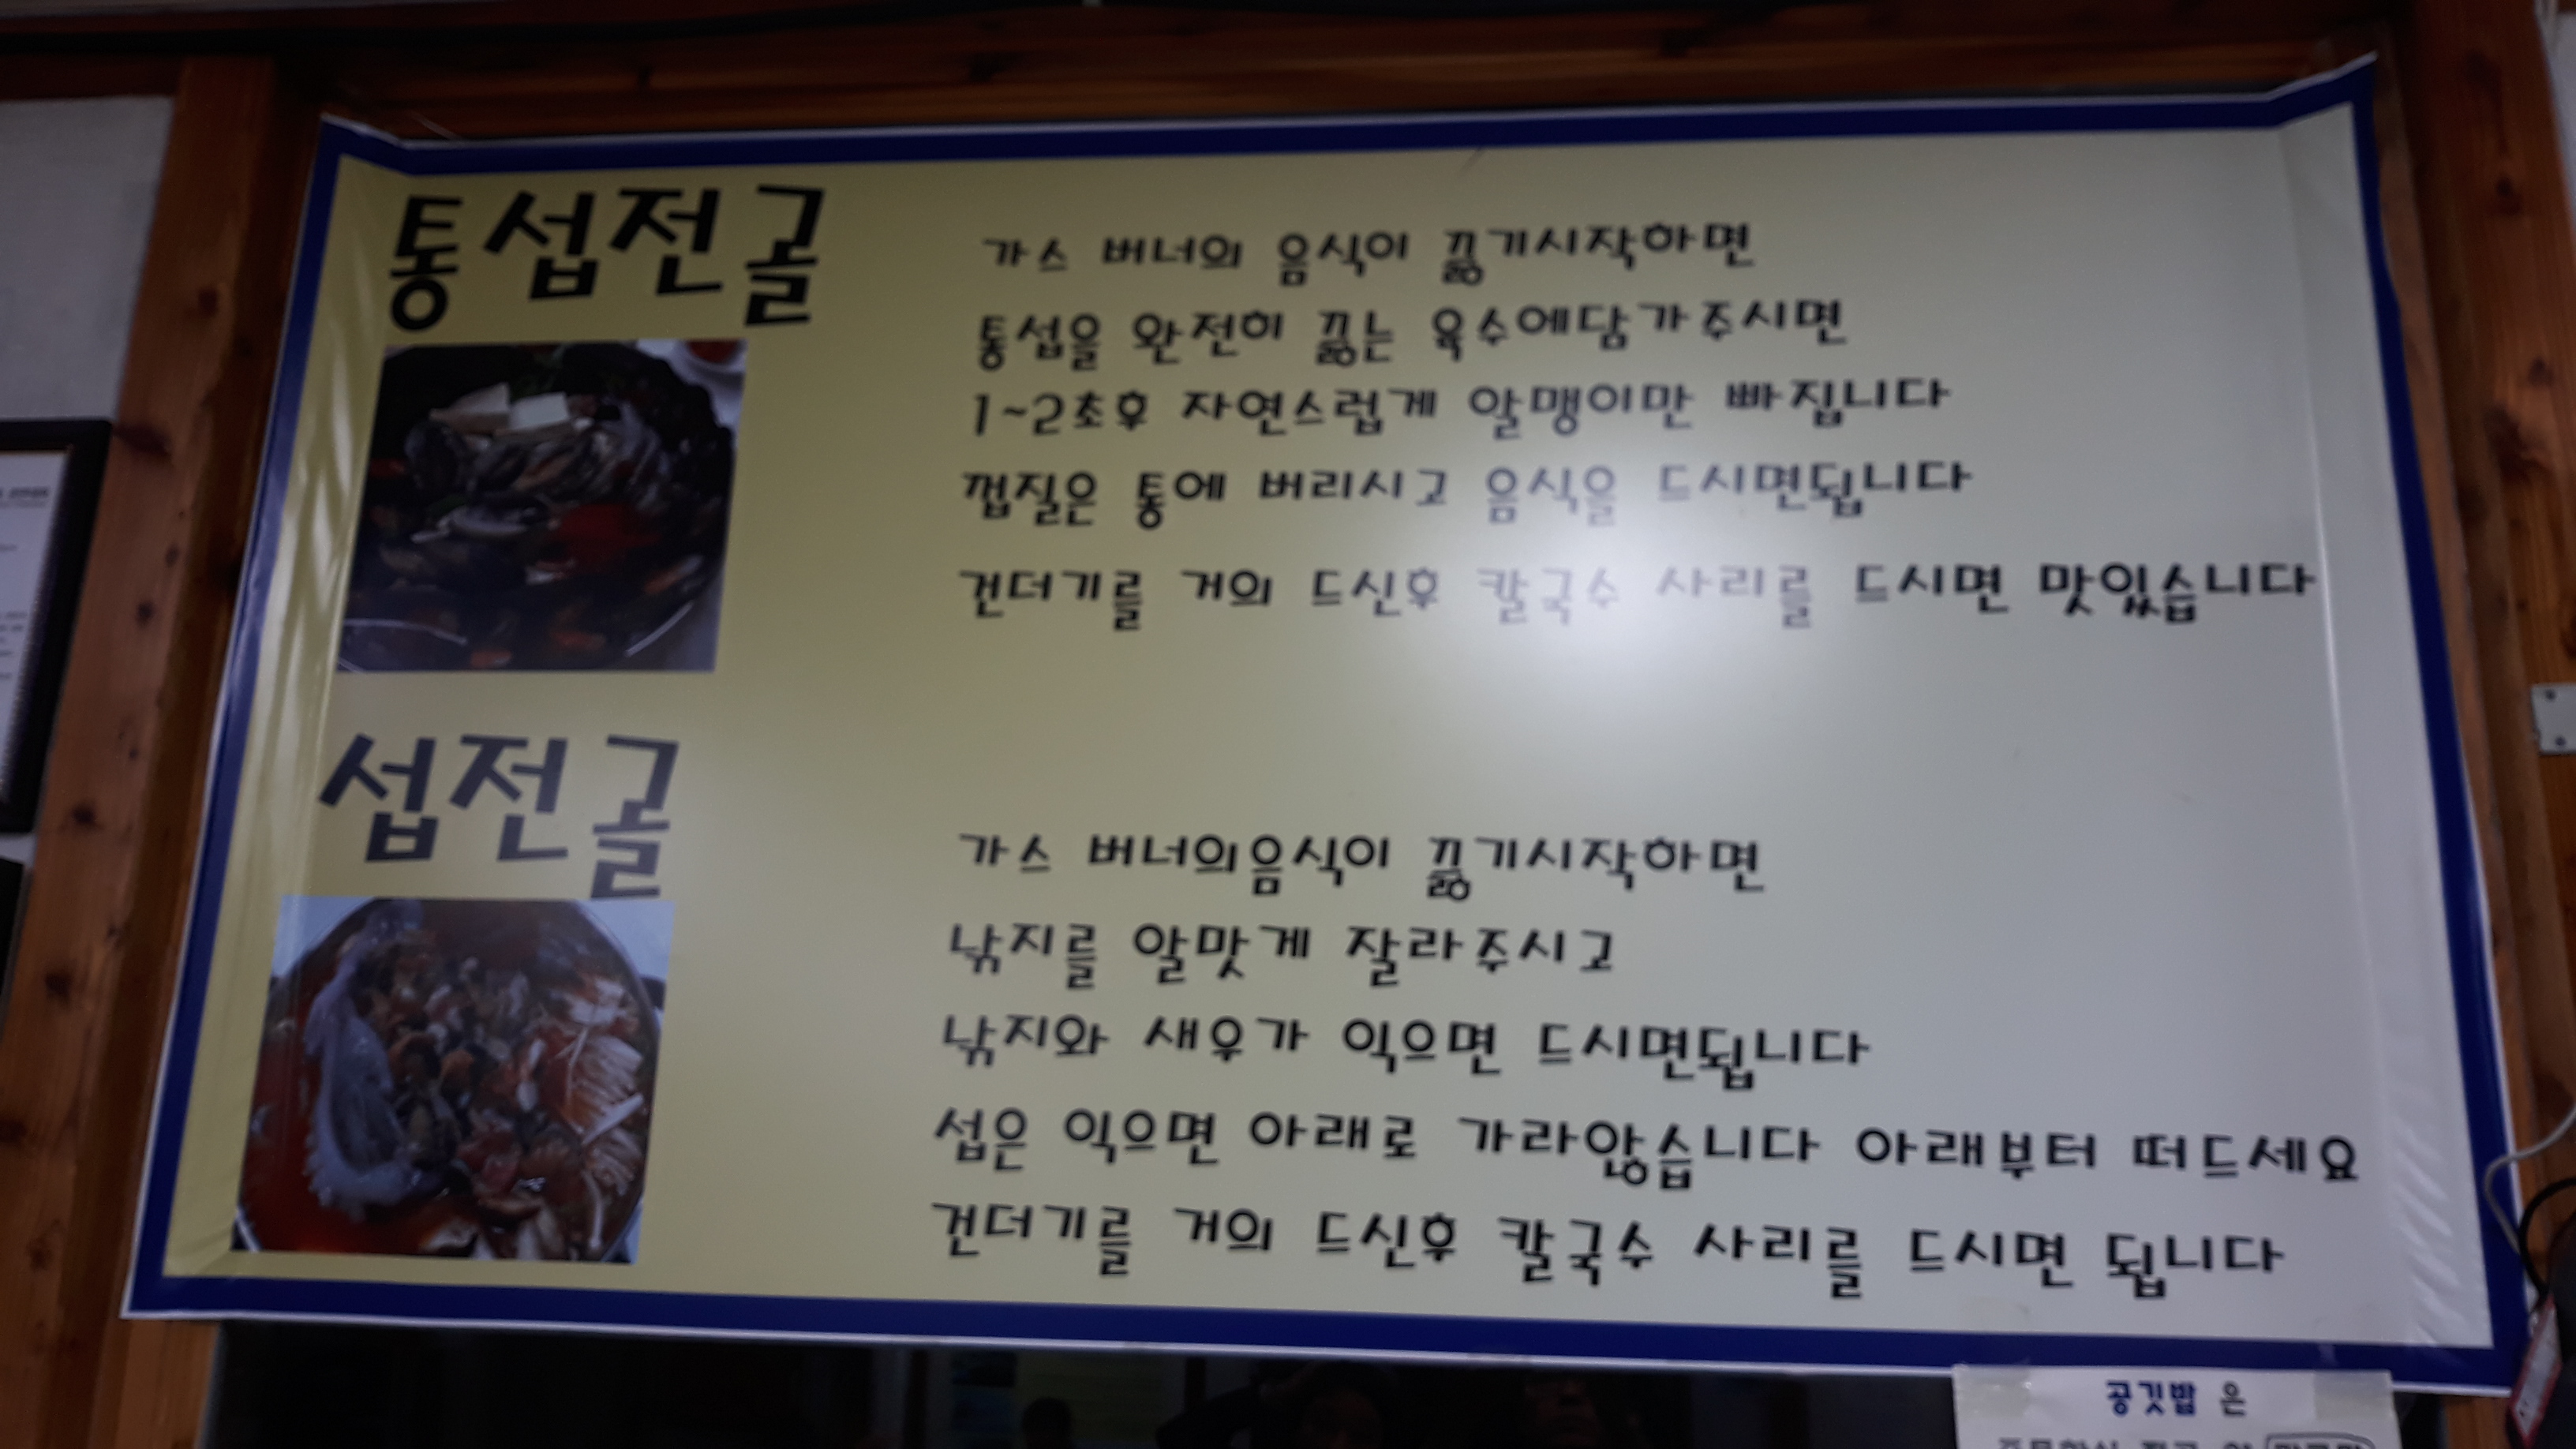 통섭전골
가스 버너의 음식이 끓기시작하면
통섭을 완전히 끓는 육수에담가주시면
1~2초후 자연스럽게 알맹이만 빠집니다
껍질은 통에 버리시고 음식을 드시면됩니다
건더기를 거의 드신후 칼국수 사리를 드시면 맛있습니다
섭전골
가스 버너의음식이 끓기시작하면
낚지를 알맞게 잘라주시고
낚지와 새우가 익으면 드시면됩니다
섭은 익으면 아래로 가라않습니다 아래부터 떠드세요
건더기를 거의 드신후 칼국수 사리를 드시면 됩니다
공깃밥 은